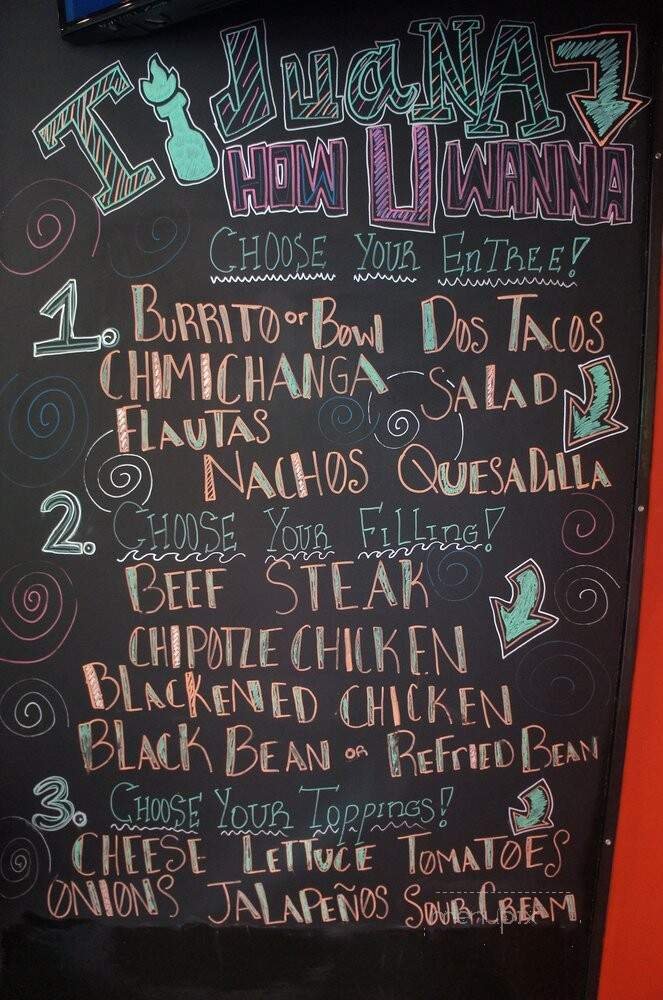 TiJuaNA
HOW U WANNA
CHOOSE YOUR ENTREE!
1. BURRITO or BOWl DOS TACOS
CHIMICHANGA SALAD
FLAUTAS
NACHOS QUESADiLLA
2. CHOOSE YOUR FiLLing!
BEEF STEAK
CHIPOTLE CHICKEN
BLACKENED CHICKEN
BLACK BEAN OR REFRiED BEAN
3. CHOOSE YOUR Toppings!
CHEESE LETTUCE TOMATOES
ONIONS JALAPEÑOS SOUR CREAM
menupix